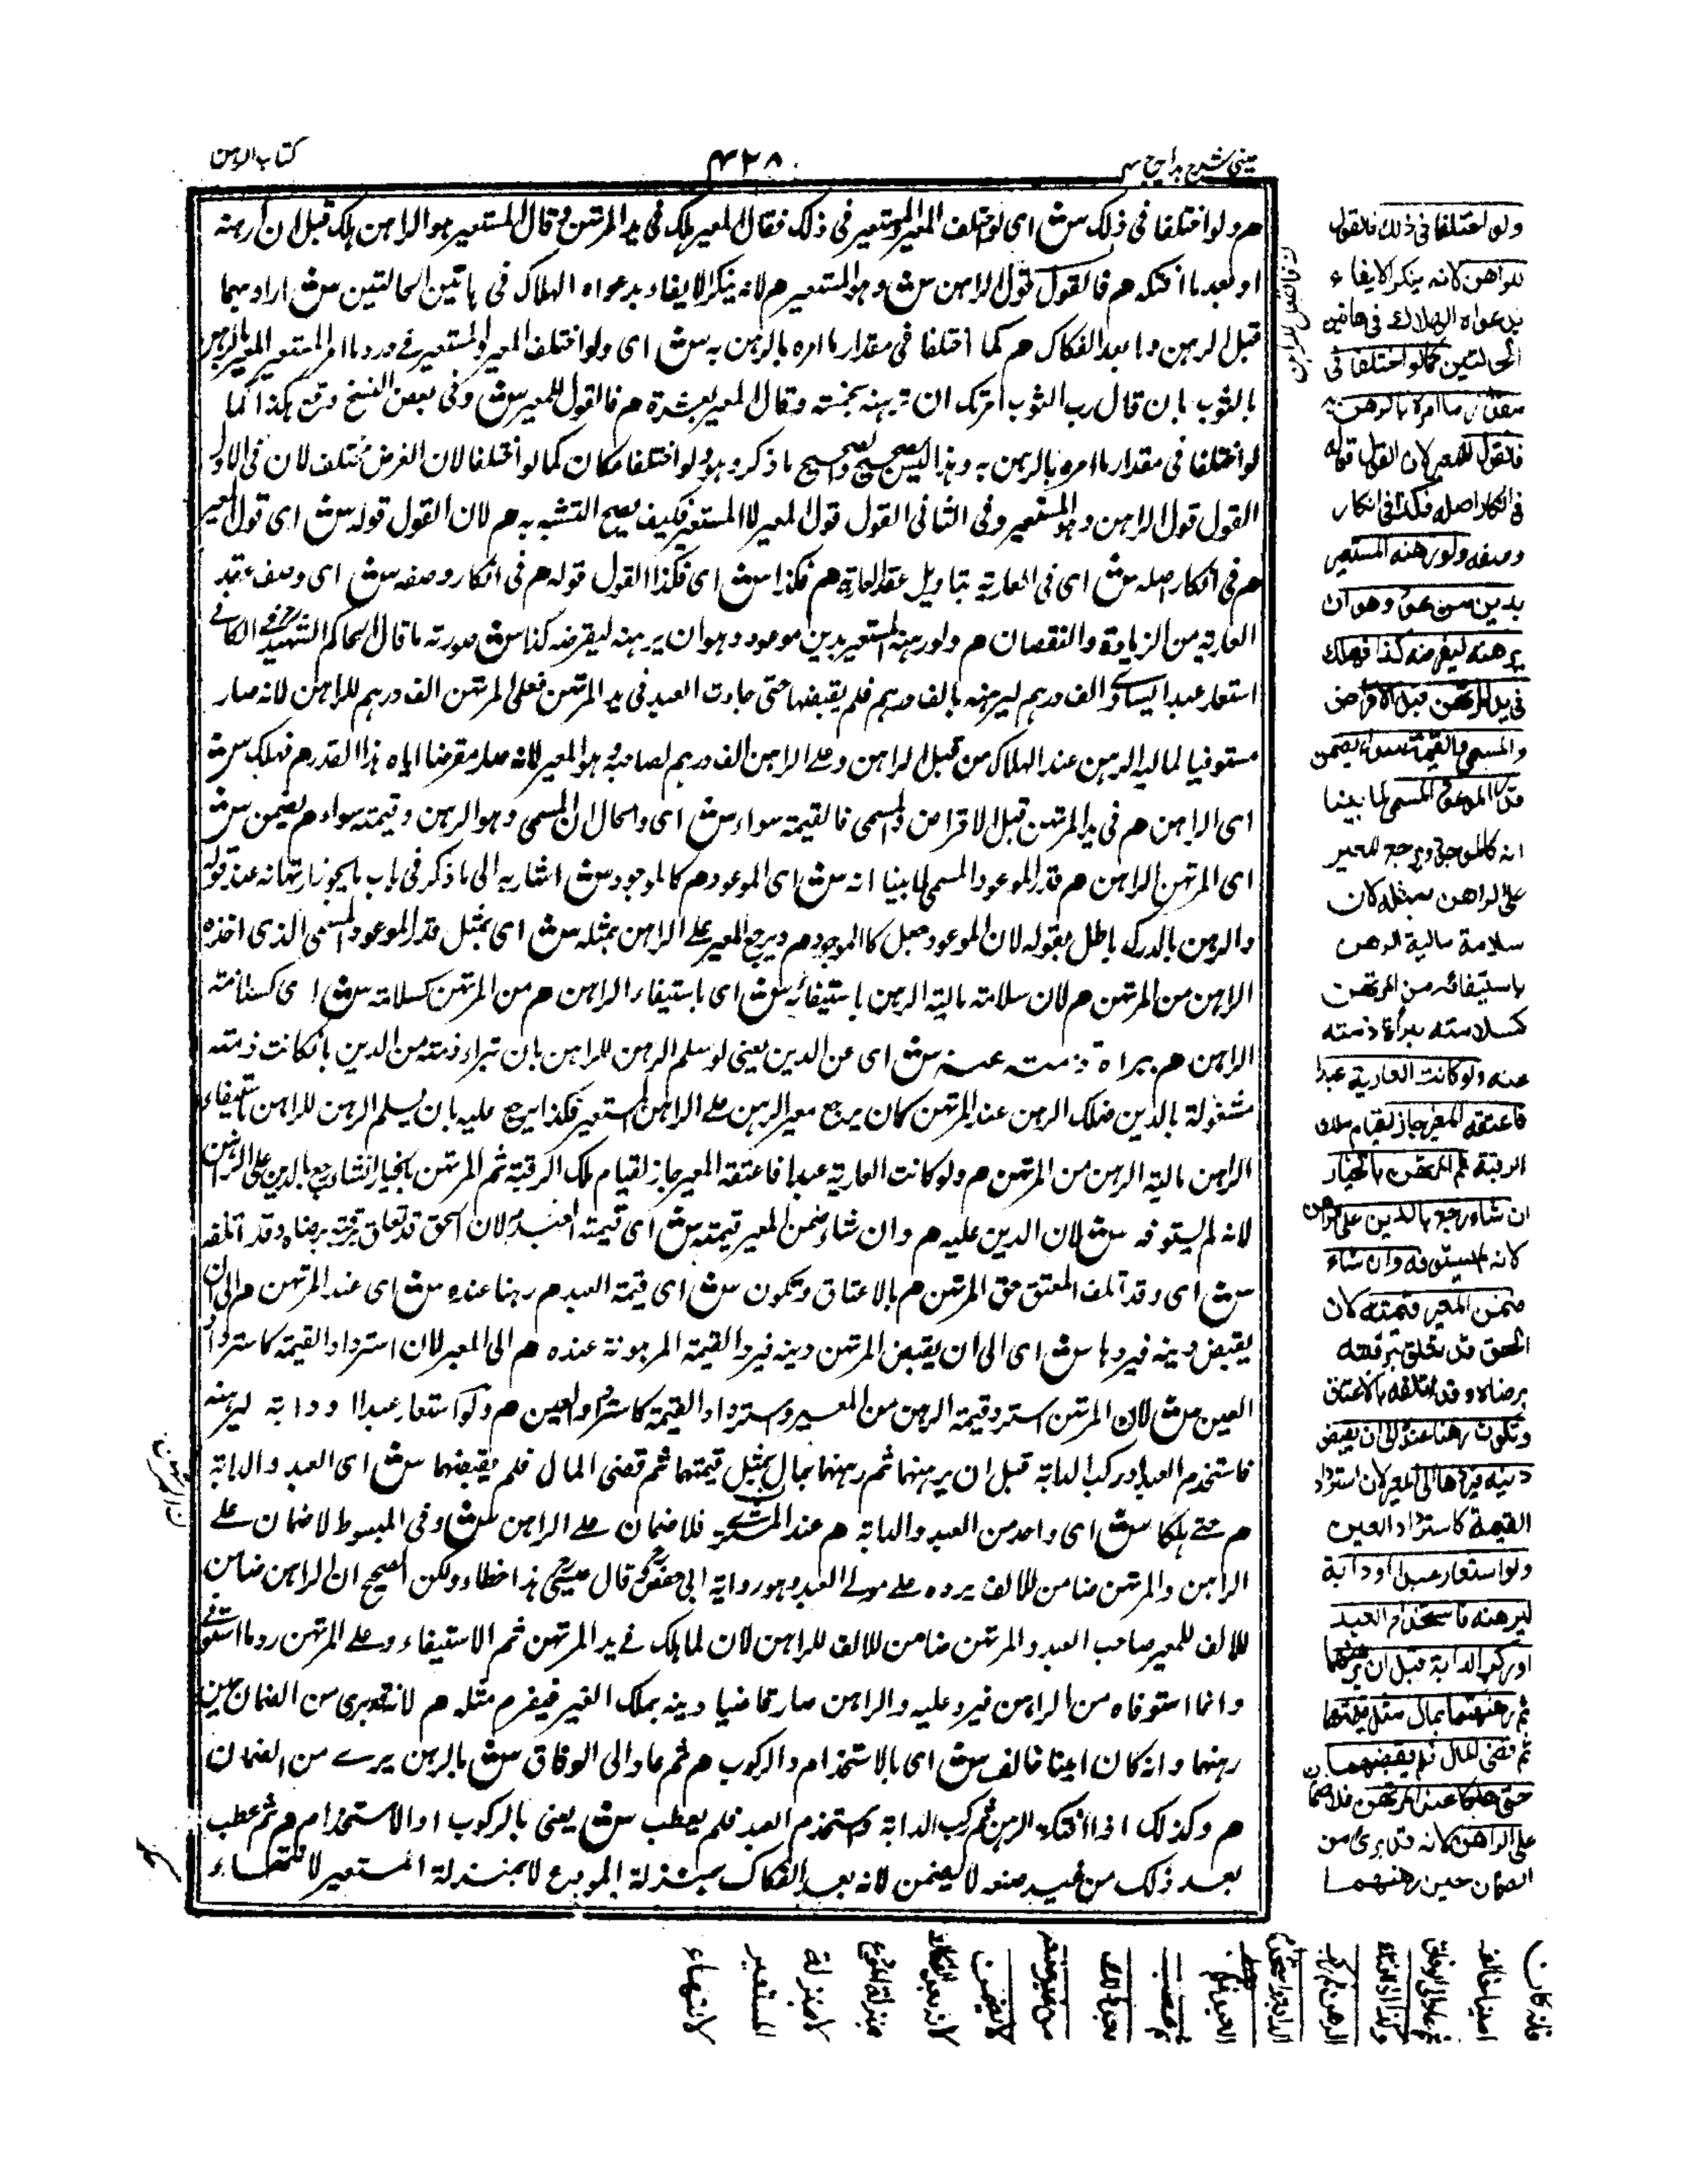 عینی شرح ہدایہ ج ۴
۴۲۸
کتاب الرہن
م ولو اختلفا فی ذلک ش ای لو اختلف المعیر والمستعیر فی ذلک فقال المعیر ہلک فی ید المرتہن وقال المستعیر ہو الراہن ہلک قبل ان ارہنہ
او بعد ما افتکہ م فالقول قول الراہن ش وہو المستعیر م لانہ ینکر الایفاء بدعواہ الہلاک فی ہاتین الحالتین ش اراد بہما
قبل الرہن وما بعد الفکاک م کما لو اختلفا فی مقدار ما امرہ بالرہن بہ ش ای ولو اختلف المعیر والمستعیر فے ما امر المعیر بالرہن
بالثوب بان قال رب الثوب امرتک ان ترہنہ بخمستہ وقال المعیر بعشرۃ م فالقول للمعیر ش وفی بعض النسخ وقع ہکذا کما
لو اختلفا فی مقدار ما امرہ بالرہن بہ وہذا لیس بصحیح والصحیح ما ذکر وہو ولو اختلفا مکان کما لو اختلفا لان الغرض مختلف لان فی الاول
القول قول الراہن وہو المستعیر وفی الثانی القول قول المعیر لا المستعیر فکیف یصح التشبہ بہ م لان القول قولہ ش ای قول المعیر
م فی انکار اصلہ ش ای فی العاریۃ بتاویل عقد العاریۃ م فکذا ش ای فکذا القول قولہ م فی انکار وصفہ ش ای وصف عقد
العاریۃ من الزیادۃ والنقصان م ولو رہنہ المستعیر بدین موعود وہو ان یرہنہ لیقرضہ کذا ش صورتہ ما قال الحاکم الشہید فی الکافے
استعار عبدا یساوے الف درہم لیرہنہ بالف درہم فلم یقبضہا حتی مات العبد فی ید المرتہن فعلی المرتہن الف درہم للراہن لانہ صار
مستوفیا لمالیۃ الرہن عند الہلاک من قبل الراہن وعلے الراہن الف درہم لصاحبہ وہو المعیر لانہ صار مقرضا ایاہ ہذا القدر م فہلک ش
ای الراہن م فی ید المرتہن قبل الاقراض والمسمی فالقیمۃ سواء ش ای والحال ان المسمی وہو الرہن وقیمتہ سواء م یضمن ش
ای المرتہن للراہن م قدر الموعود المسمی لما بینا انہ ش ای الموعود م کالموجود ش اشار بہ الی ما ذکر فی باب ما یجوز ارتہانہ عند قولہ
والرہن بالدرک باطل بقولہ لان الموعود جعل کالموجود م ویرجع المعیر علے الراہن بمثلہ ش ای بمثل قدر الموعود المسمی الذی اخذہ
الراہن من المرتہن م لان سلامۃ مالیۃ الرہن باستیفائہ ش ای باستیفاء الراہن م من المرتہن کسلامتہ ش ای کسلامتہ
الراہن م ببراءۃ ذمتہ عنہ ش ای عن الدین یعنی لو سلم الرہن للراہن بان تبراء ذمتہ من الدین بانکانت ذمتہ
مشغولۃ بالدین فہلک الرہن عند المرتہن کان یرجع معیر الرہن علے الراہن المستعیر فکذا یرجع علیہ بان یسلم الرہن للراہن باستیفاء
الراہن مالیۃ الرہن من المرتہن م ولو کانت العاریۃ عبدا فاعتقہ المعیر جاز لقیام ملک الرقبۃ ثم المرتہن بالخیار انشاء رجع بالدین علی الراہن
لانہ لم یستوفہ ش لان الدین علیہ م وان شاء ضمن المعیر قیمتہ ش ای قیمۃ العبد م لان الحق قد تعلق برقبتہ برضاہ وقد اتلفہ
ش ای وقد اتلف المعتق حق المرتہن م بالاعتاق وتکون ش ای قیمۃ العبد م رہنا عندہ ش ای عند المرتہن م الی ان
یقبض دینہ فیردہا ش ای الی ان یقبض المرتہن دینہ فیرد القیمۃ المرہونۃ عندہ م الی المعیر لان استرداد القیمۃ کاسترداد
العین ش لان المرتہن استرد قیمۃ الرہن من المعیر واسترداد القیمۃ کاسترداد العین م ولو استعار عبدا او دابۃ لیرہنہ
فاستخدم العبد او رکب الدابۃ قبل ان یرہنہما ثم رہنہما بمال بمثل قیمتہما ثم قضی المال فلم یقبضہما ش ای العبد والدابۃ
م حتے ہلکا ش ای واحد من العبد والدابۃ م عند المرتہن فلا ضمان علے الراہن ش وفی المبسوط لا ضمان علے
الراہن والمرتہن ضامن للالف یردہ علے مولے العبد وہو روایۃ ابی حفص قال عیسی ہذا خطاء ولکن الصحیح ان الراہن ضامن
للالف للمعیر صاحب العبد والمرتہن ضامن للالف للراہن لان لما ہلک فے ید المرتہن ثم الاستیفاء وعلے المرتہن رد ما استوفے
وانما استوفاہ من الراہن فیرد علیہ والراہن صار قاضیا دینہ بملک الغیر فیغرم مثلہ م لانہ قد بری من الضمان حین
رہنہما وانہ کان امینا خالف ش ای بالاستخدام والرکوب م ثم عاد الی الوفاق ش بالرہن یبرے من الضمان
م وکذلک اذا افتک الرہن ثم رکب الدابۃ واستخدم العبد فلم یعطب ش یعنی بالرکوب او الاستخدام م ثم عطب
بعد ذلک من غیر صنعہ لا یضمن لانہ بعد الفکاک بمنزلۃ المودع لا بمنزلۃ المستعیر لانتہاء
ولو اختلفا فی ذلك فالقول
للراهن لانه ینکر الایفاء
بدعواه الهلاك فی هاتین
الحالتین کما لو اختلفا فی
مقدار ما امره بالرهن به
فالقول للمعیر لان القول قوله
فی انکار اصله فکذا فی انکار
وصفه ولو رهنه المستعیر
بدین موعود وهو ان
یرهنه لیقرضه کذا فهلك
فی ید المرتهن قبل الاقراض
والمسمی والقیمة سواء یضمن
قدر الموعود المسمی لما بینا
انه کالموجود ویرجع المعیر
علی الراهن بمثله لان
سلامة مالیة الرهن
باستیفائه من المرتهن
کسلامته ببراءة ذمته
عنه ولو کانت العاریة عبدا
فاعتقه المعیر جاز لقیام ملك
الرقبة ثم المرتهن بالخیار
ان شاء رجع بالدین علی الراهن
لانه لم یستوفه وان شاء
ضمن المعیر قیمته لان
الحق قد تعلق برقبته
برضاه وقد اتلفه بالاعتاق
وتکون رهنا عنده الی ان یقبض
دینه فیردها الی المعیر لان استرداد
القیمة کاسترداد العین
ولو استعار عبدا او دابة
لیرهنه فاستخدم العبد
او رکب الدابة قبل ان یرهنهما
ثم رهنهما بمال مثل قیمتهما
ثم قضی المال فلم یقبضهما
حتی هلکا عند المرتهن فلا ضمان
علی الراهن لانه قد برئ من
الضمان حین رهنهما
فانه کان
امینا خالف
ثم عاد الی الوفاق
وکذا اذا افتك
الرهن ثم رکب
الدابة او استخدم
العبد فلم یعطب
ثم عطب
بعد ذلك
من غیر صنعه
لا یضمن
لانه بعد الفکاك
بمنزلة المودع
لا بمنزلة
المستعیر
لانتهاء